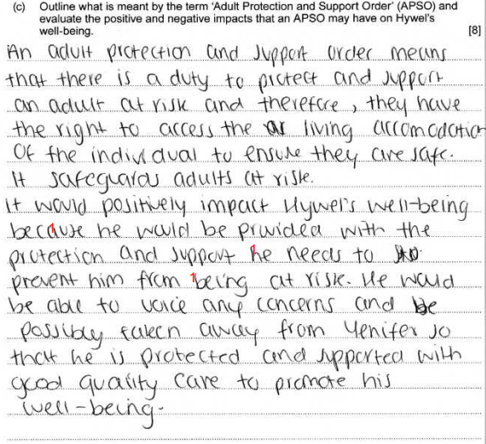 (c) Outline what is meant by the term 'Adult Protection and Support Order' (APSO) and
evaluate the positive and negative impacts that an APSO may have on Hywel's
well-being. [8]
An adult protection and support order means
that there is a duty to protect and support
an adult at risk and therefore, they have
the right to access the living accomodation
of the individual to ensure they are safe.
It safeguards adults at risk.
It would positively impact Hywel's well-being
because he would be provided with the
protection and support he needs to
prevent him from being at risk. He would
be able to voice any concerns and be
possibly taken away from Yenifer so
that he is protected and supported with
good quality care to promote his
well-being.